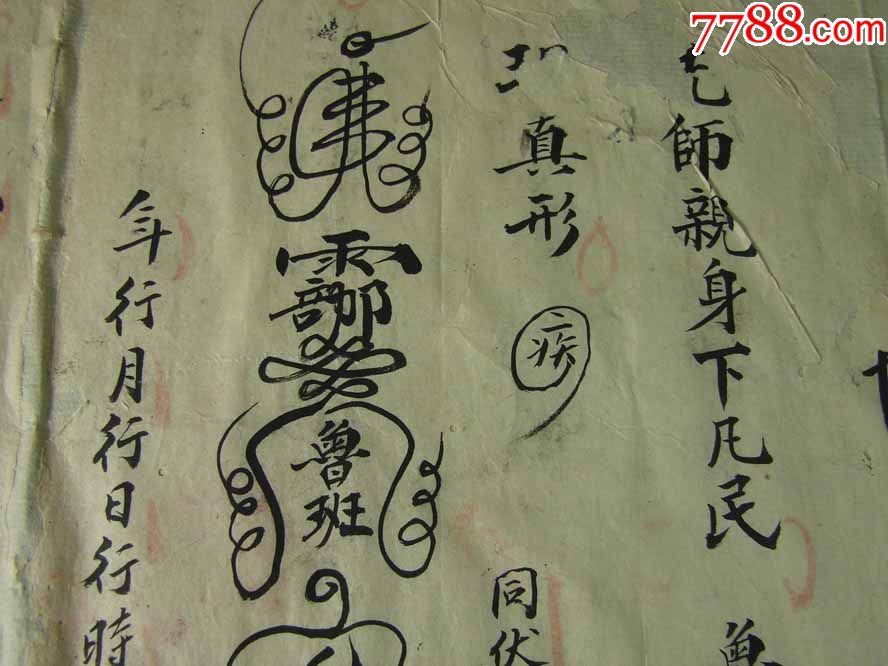 7788.com
師親身下凡民
真形
疾
同伏
佛
魯班
年行月行日行時